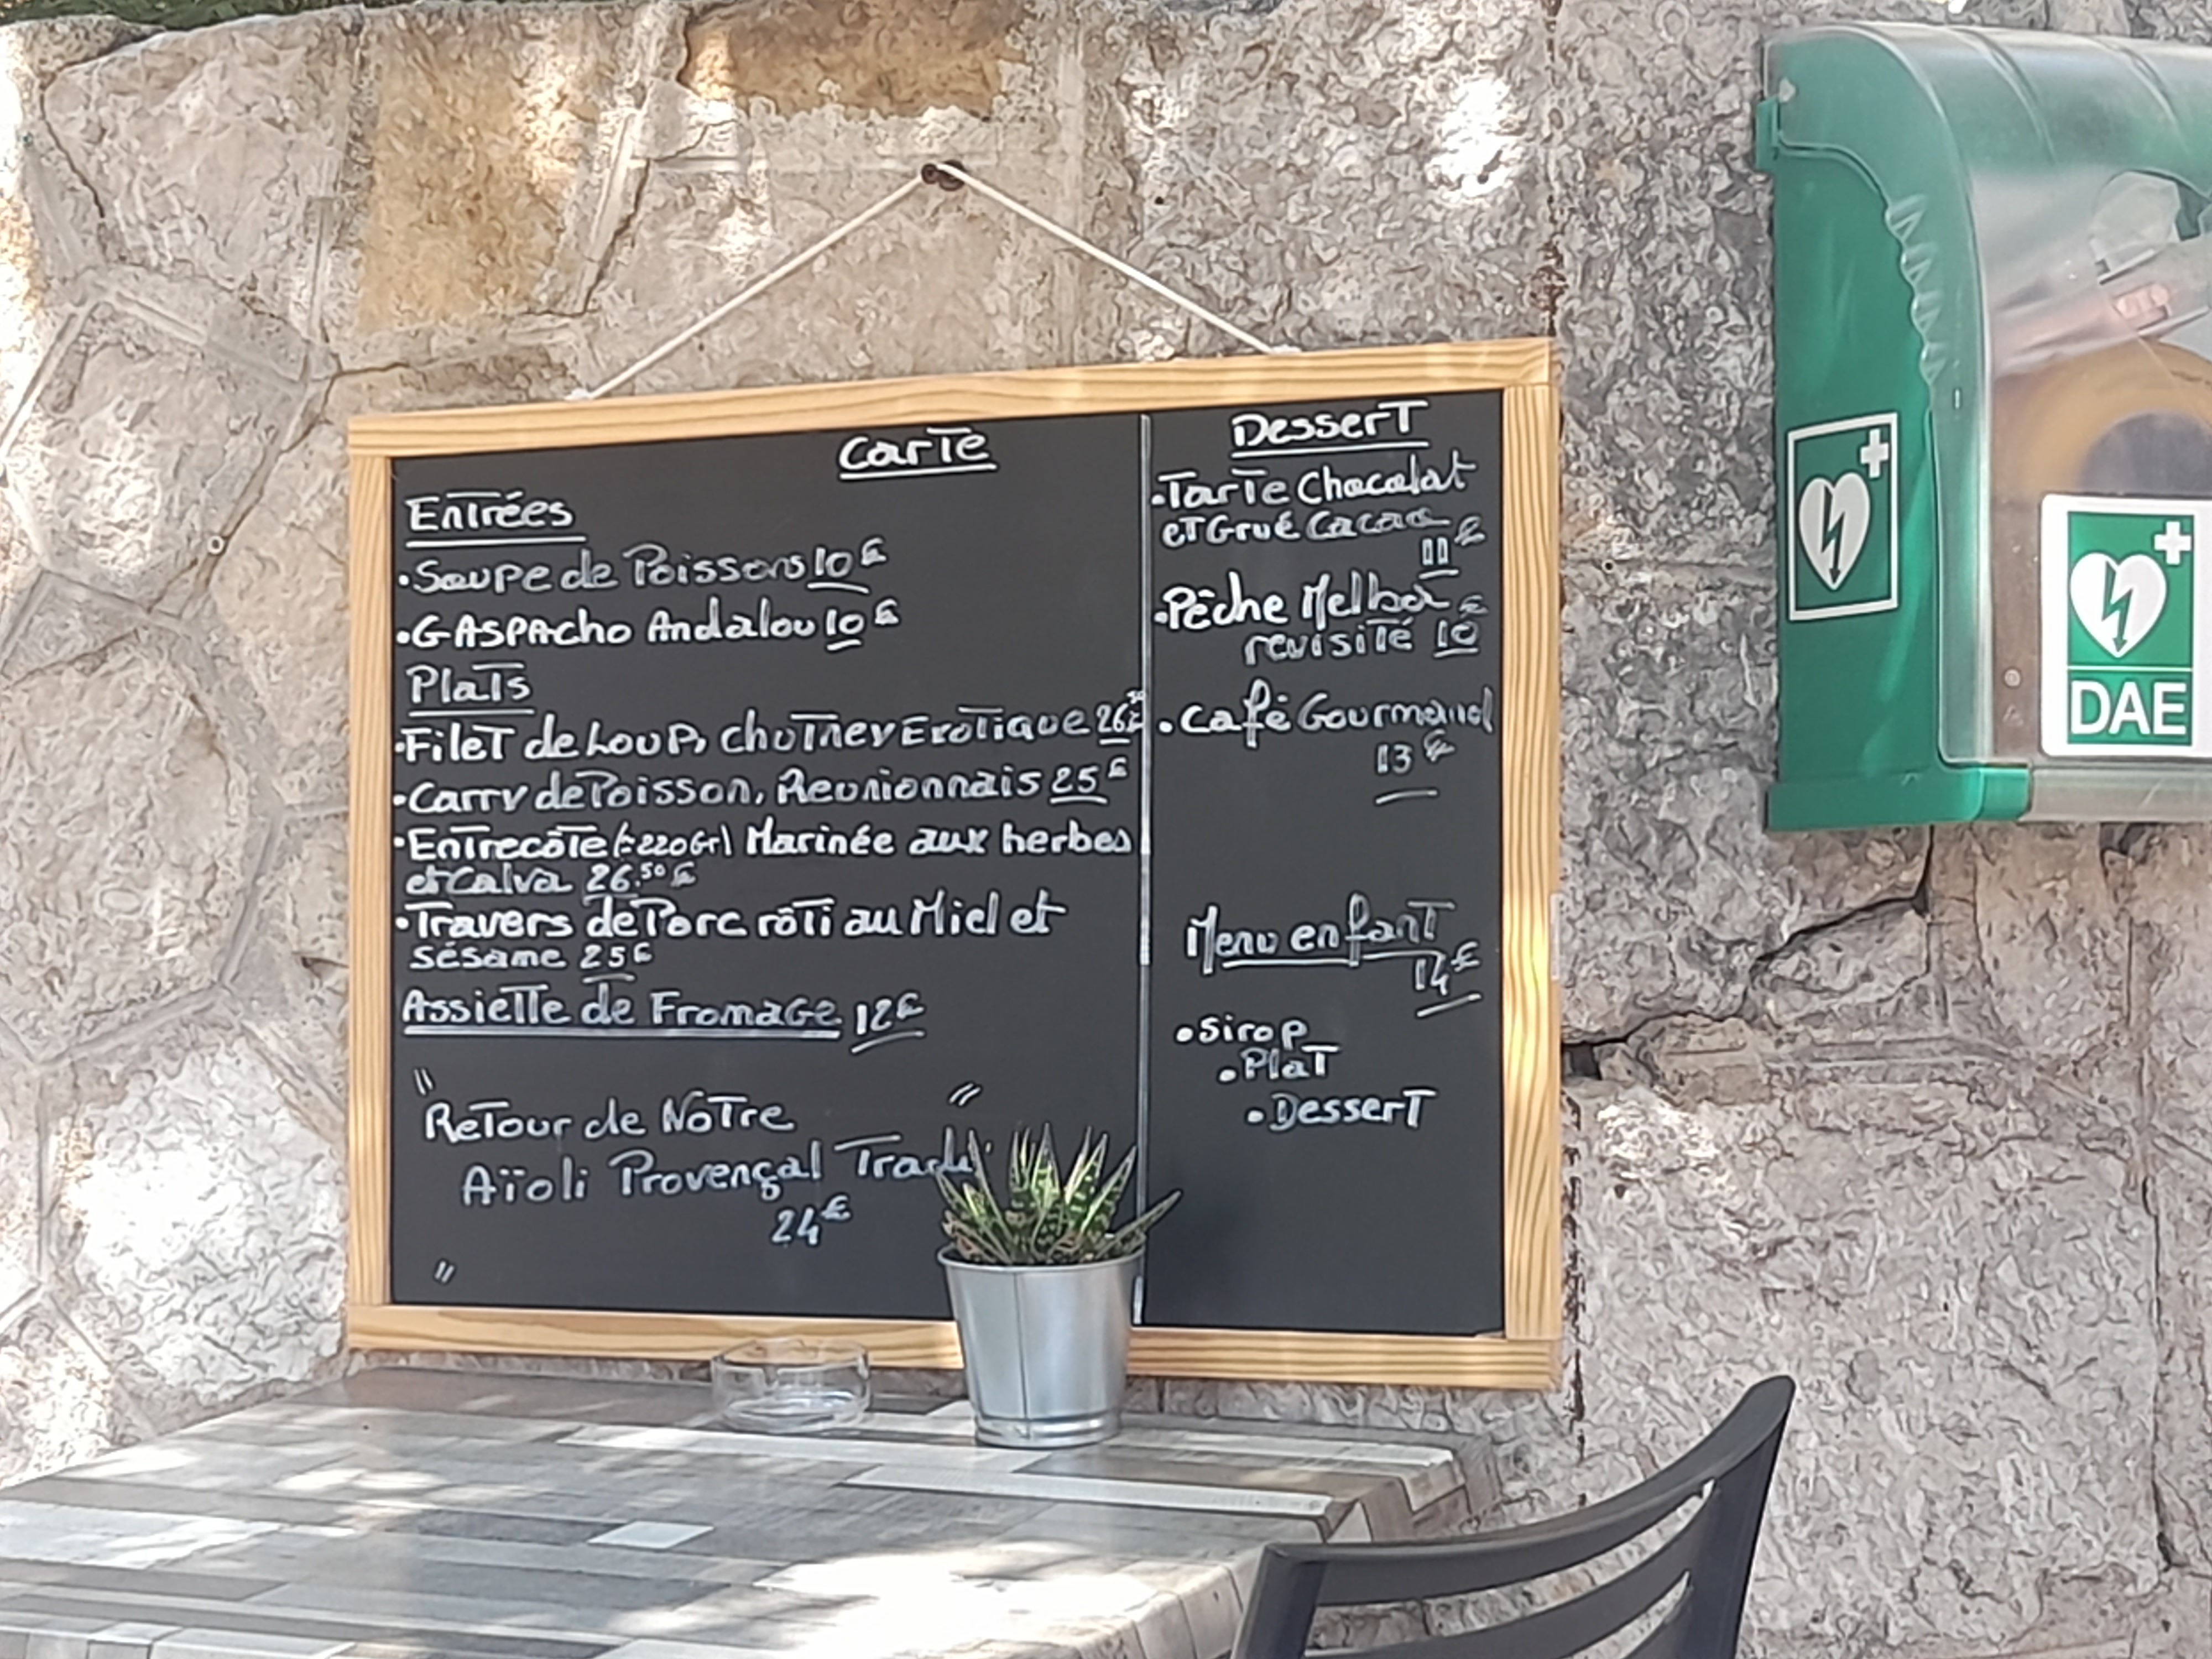 Carte
Entrées
• Soupe de Poissons 10€
• GASPAcho Andalou 10€
Plats
• Filet de Loup, chutney Exotique 26,50€
• Carry de Poisson, Reunionnais 25€
• Entrecôte (±220Gr) Marinée aux herbes
et Calva 26.50€
• Travers de Porc rôti au Miel et
Sésame 25€
Assiette de Fromage 12€
" Retour de Notre "
Aïoli Provençal Tradi
24€
"
Dessert
• Tarte Chocolat
et Grué Cacao
11€
• Pêche Melba
revisité 10€
• Café Gourmand
13€
Menu enfant
14€
• Sirop
• Plat
• Dessert
DAE